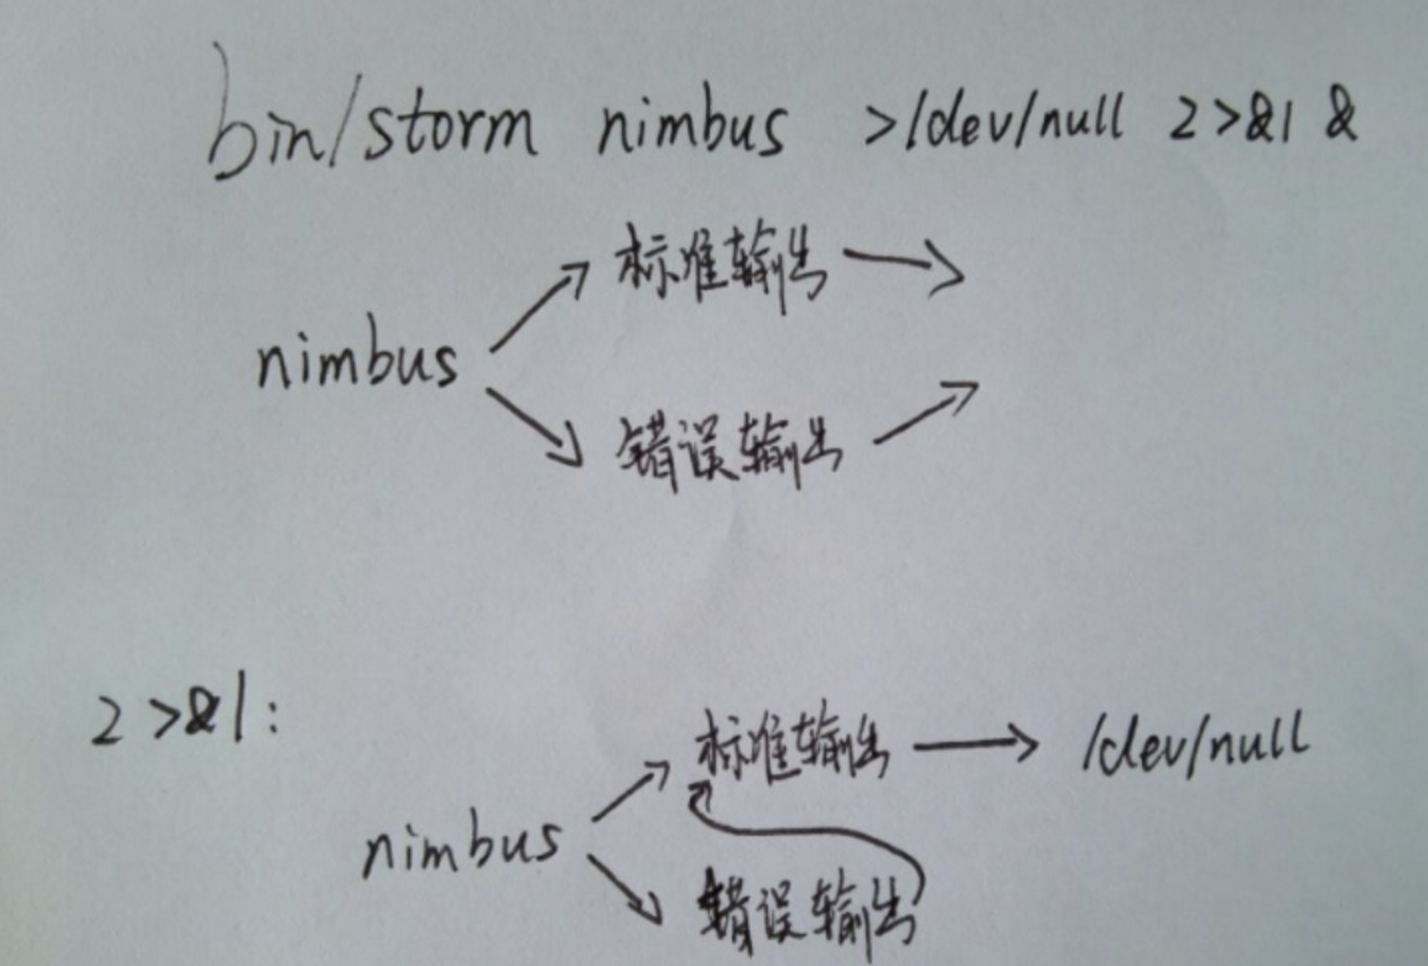 bin/storm nimbus >/dev/null 2>&1 &
标准输出
nimbus
错误输出
2>&1:
标准输出 /dev/null
nimbus
错误输出